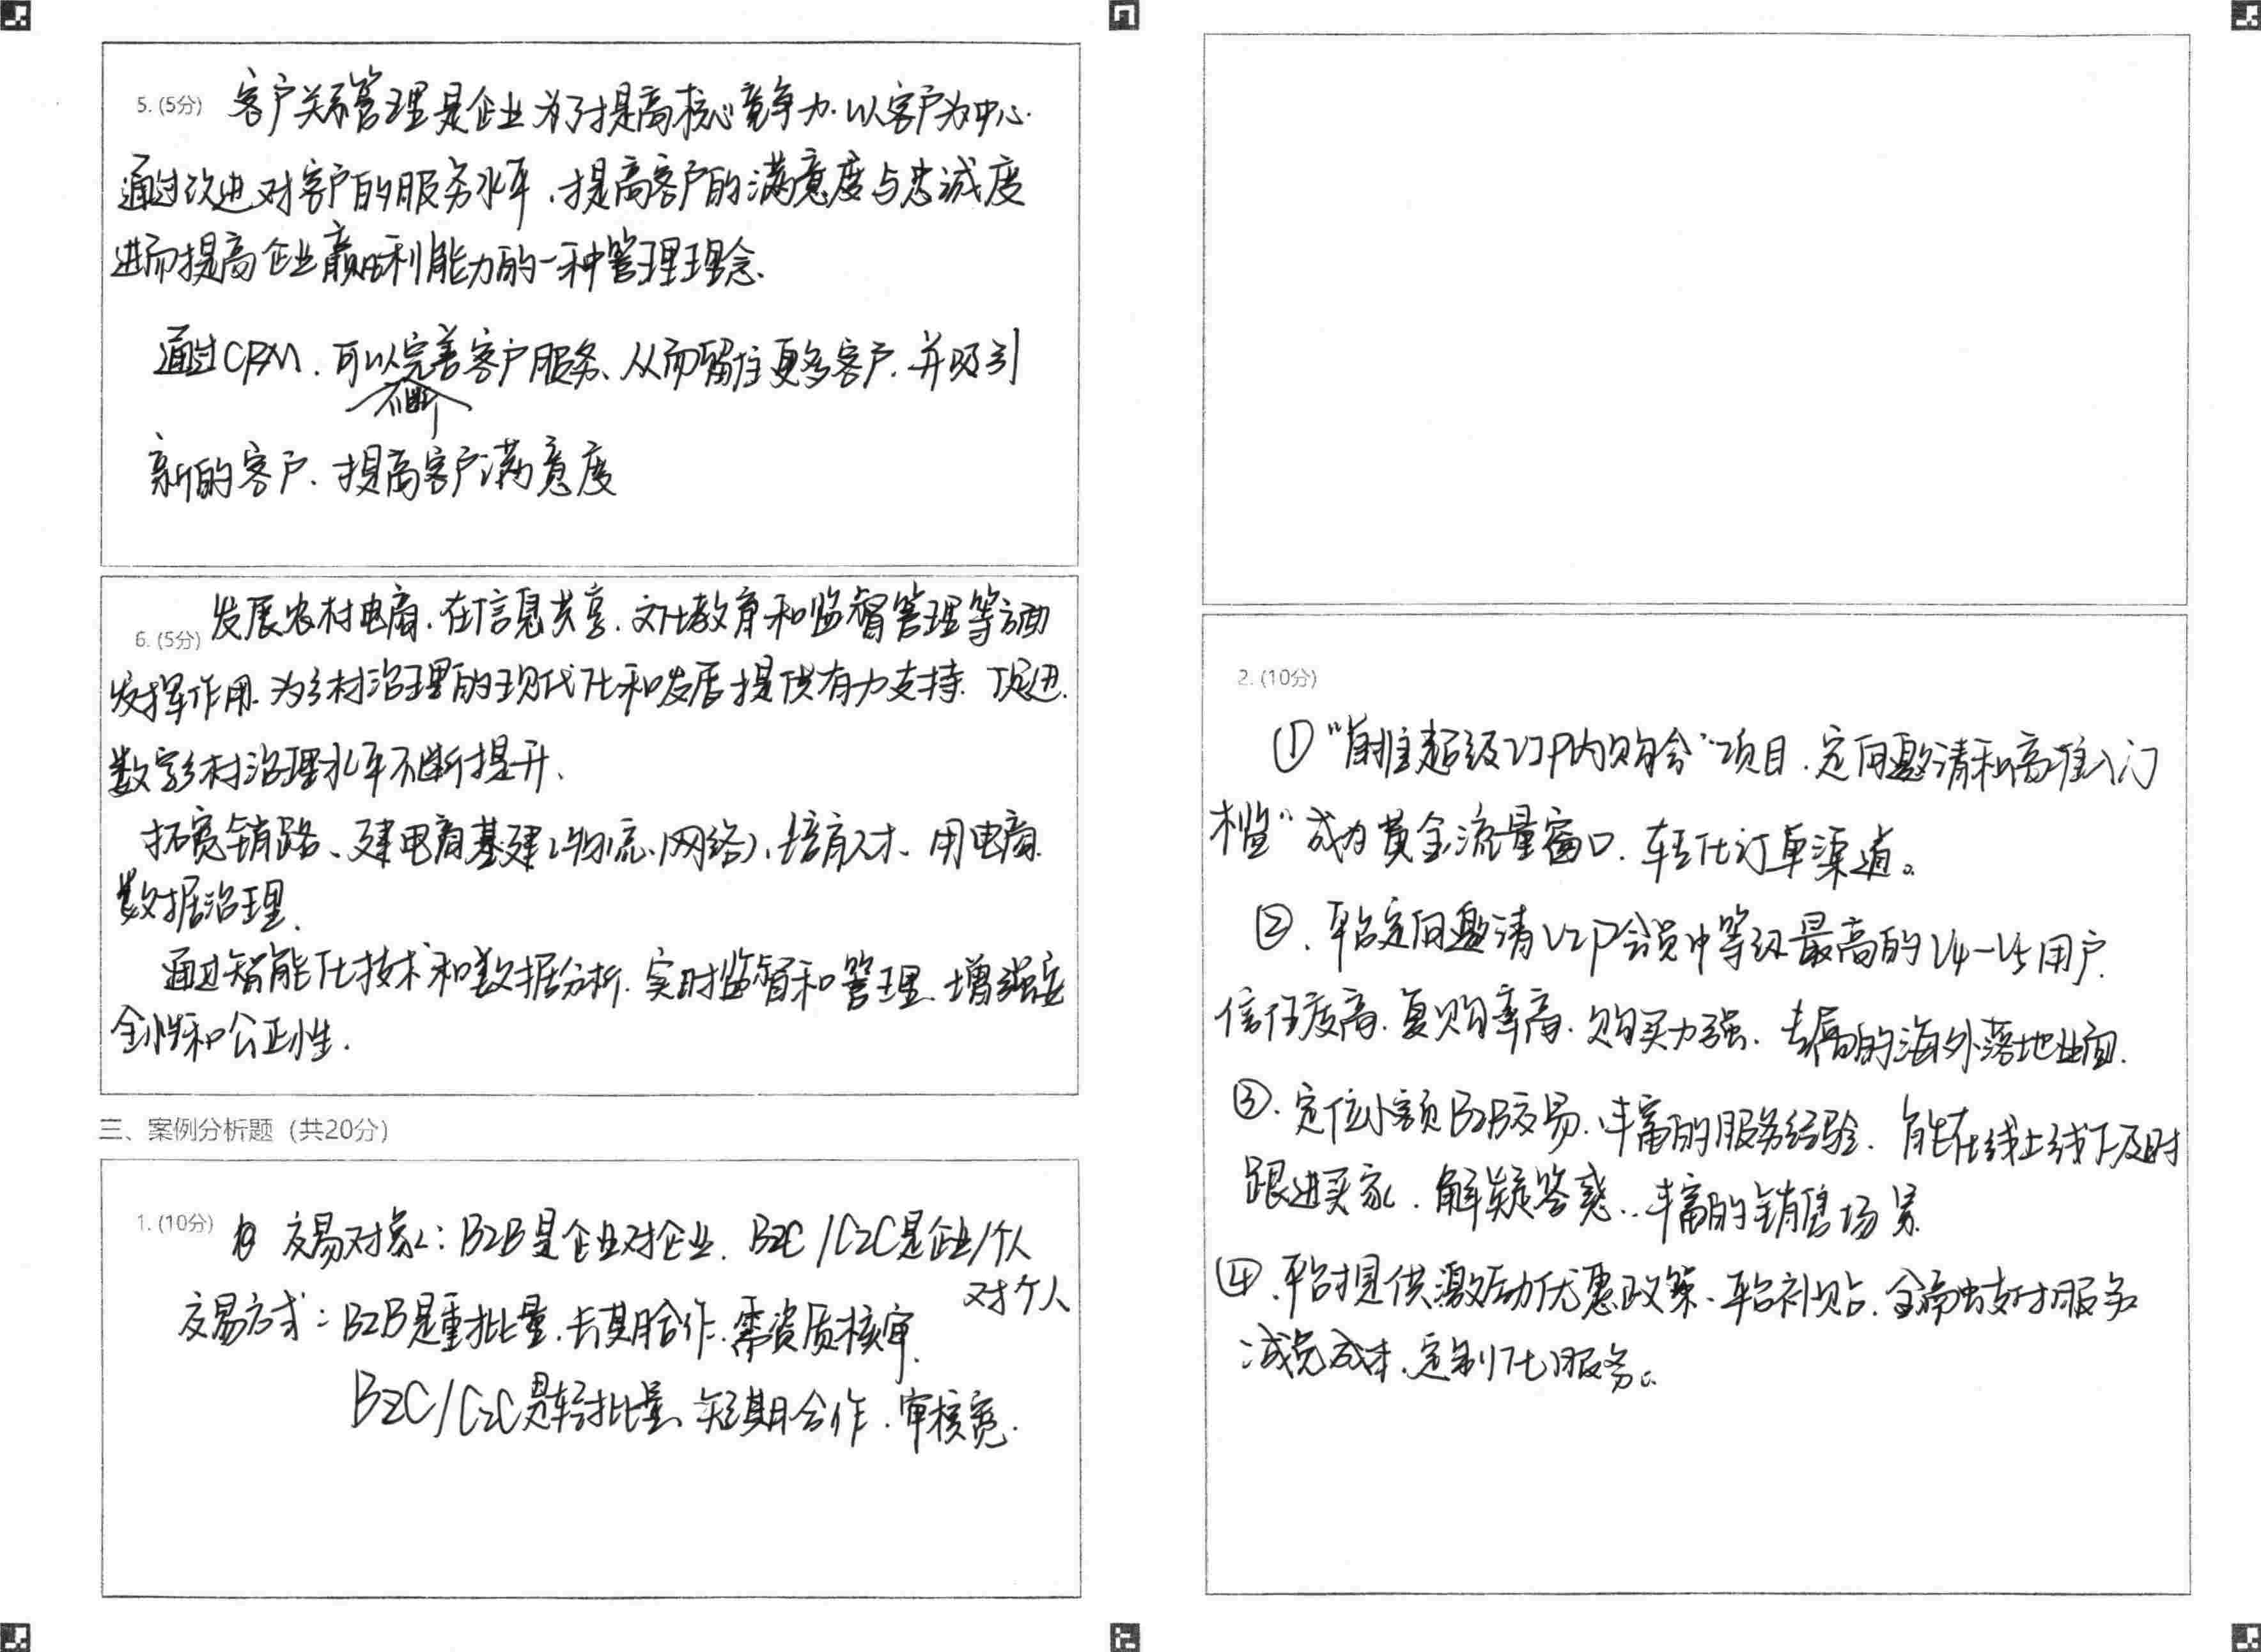 5. (5分) 客户关系管理是企业为了提高核心竞争力.以客户为中心.
通过改进对客户的服务水平.提高客户的满意度与忠诚度
进而提高企业赢利能力的一种管理理念.
通过CRM.可以完善客户服务、从而留住更多客户.并吸引
不断
新的客户.提高客户满意度
6. (5分) 发展农村电商.在信息共享.文化教育和监督管理等方面
发挥作用.为乡村治理的现代化和发展提供有力支持.促进.
数字乡村治理水平不断提升、
拓宽销路、建电商基建(物流、网络)、培育人才、用电商.
数据治理.
通过智能化技术和数据分析.实时监督和管理.增强安
全性和公正性.
三、案例分析题（共20分）
1. (10分) 交易对象:B2B是企业对企业.B2C/C2C是企业/个人
对个人
交易方式:B2B是重批量.长期合作.需资质核审.
B2C/C2C是轻批量、短期合作.审核宽.
2. (10分)
①"自推超级VIP内购会"项目.定向邀请和高准入门
槛"成为黄金流量窗口.轻化订单渠道。
②.平台定向邀请VIP会员中等级最高的V4-V5用户.
信任度高.复购率高.购买力强.专属的海外落地页面.
③.定位小额B2B交易.丰富的服务经验.能在线上线下及时
跟进买家.解疑答惑..丰富的销售场景
④.平台提供激励优惠政策、平台补贴.全流支付服务
减免成本.定制化服务。